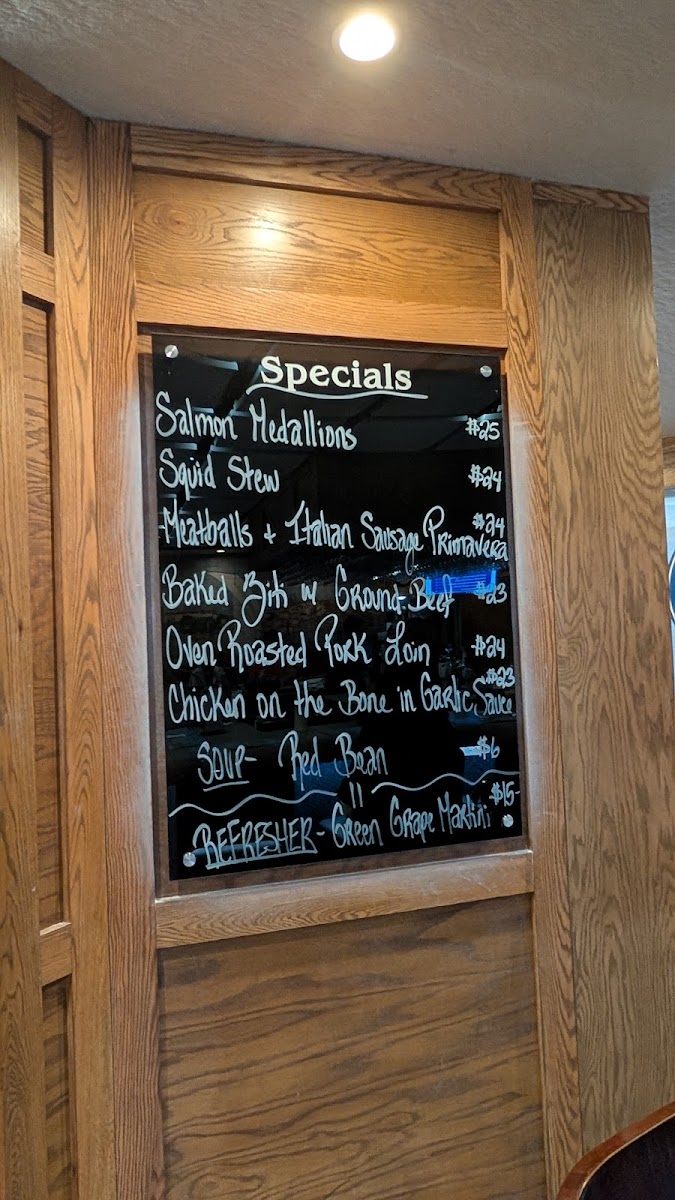 Specials
Salmon Medallions #25
Squid Stew #24
Meatballs + Italian Sausage Primavera #24
Baked Ziti w Ground Beef #23
Oven Roasted Pork Loin #24
Chicken on the Bone in Garlic Sauce #23
SOUP- Red Bean $6
REFRESHER- Green Grape Martini $15-